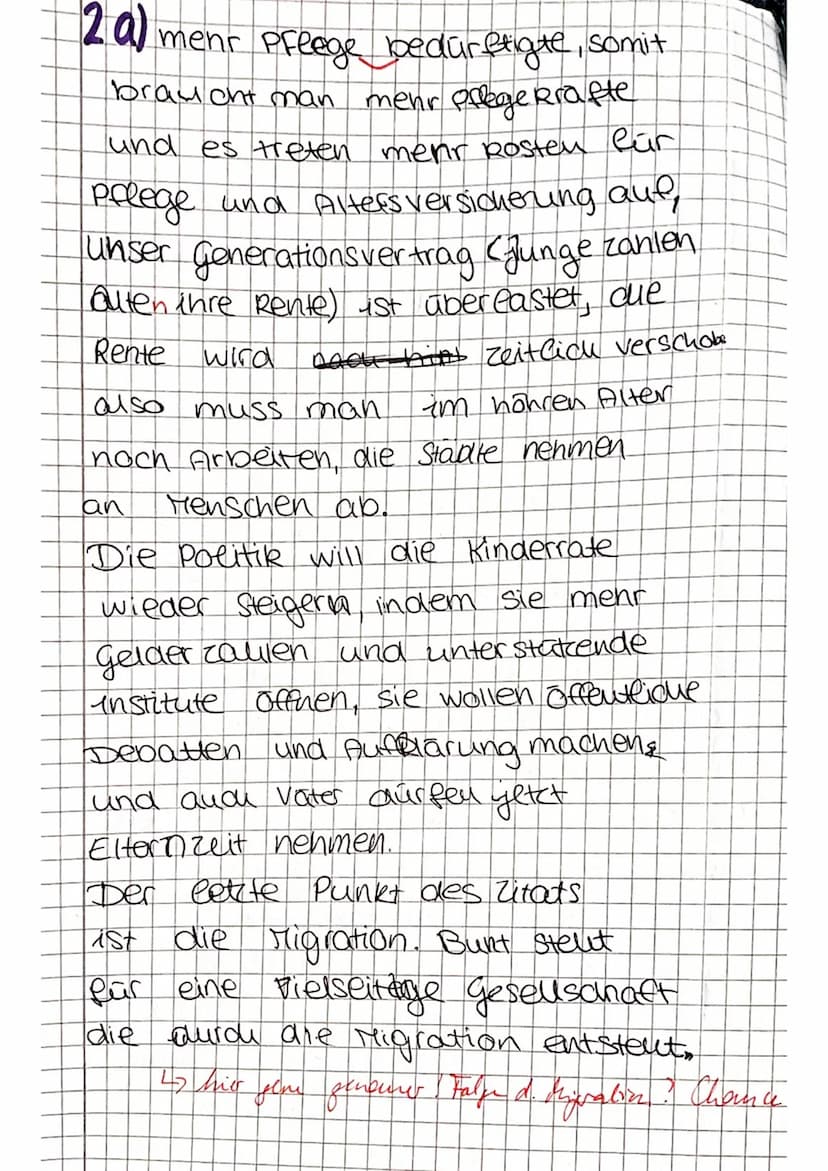 2a) mehr Pflege bedürftigte, somit
braucht man mehr Pflegekräfte
und es treten mehr Kosten für
Pflege und Altersversicherung auf,
unser Generationsvertrag (Junge zahlen
Alten ihre Rente) ist überlastet, die
Rente wird zeitlich verschobe
also muss man im höhren Alter
noch Arbeiten, die Städte nehmen
an Menschen ab.
Die Politik will die Kinderrate
wieder steigern, indem sie mehr
Gelder zahlen und unterstützende
Institute öffnen, sie wollen öffentliche
Debatten und Aufklärung machen
und auch Väter dürfen jetzt
Elternzeit nehmen.
Der letzte Punkt des Zitats
ist die Migration. Bunt steht
für eine vielseitige Gesellschaft
die durch die Migration entsteht.
↳ hier gene genauer! Folge d. Migration? Chance